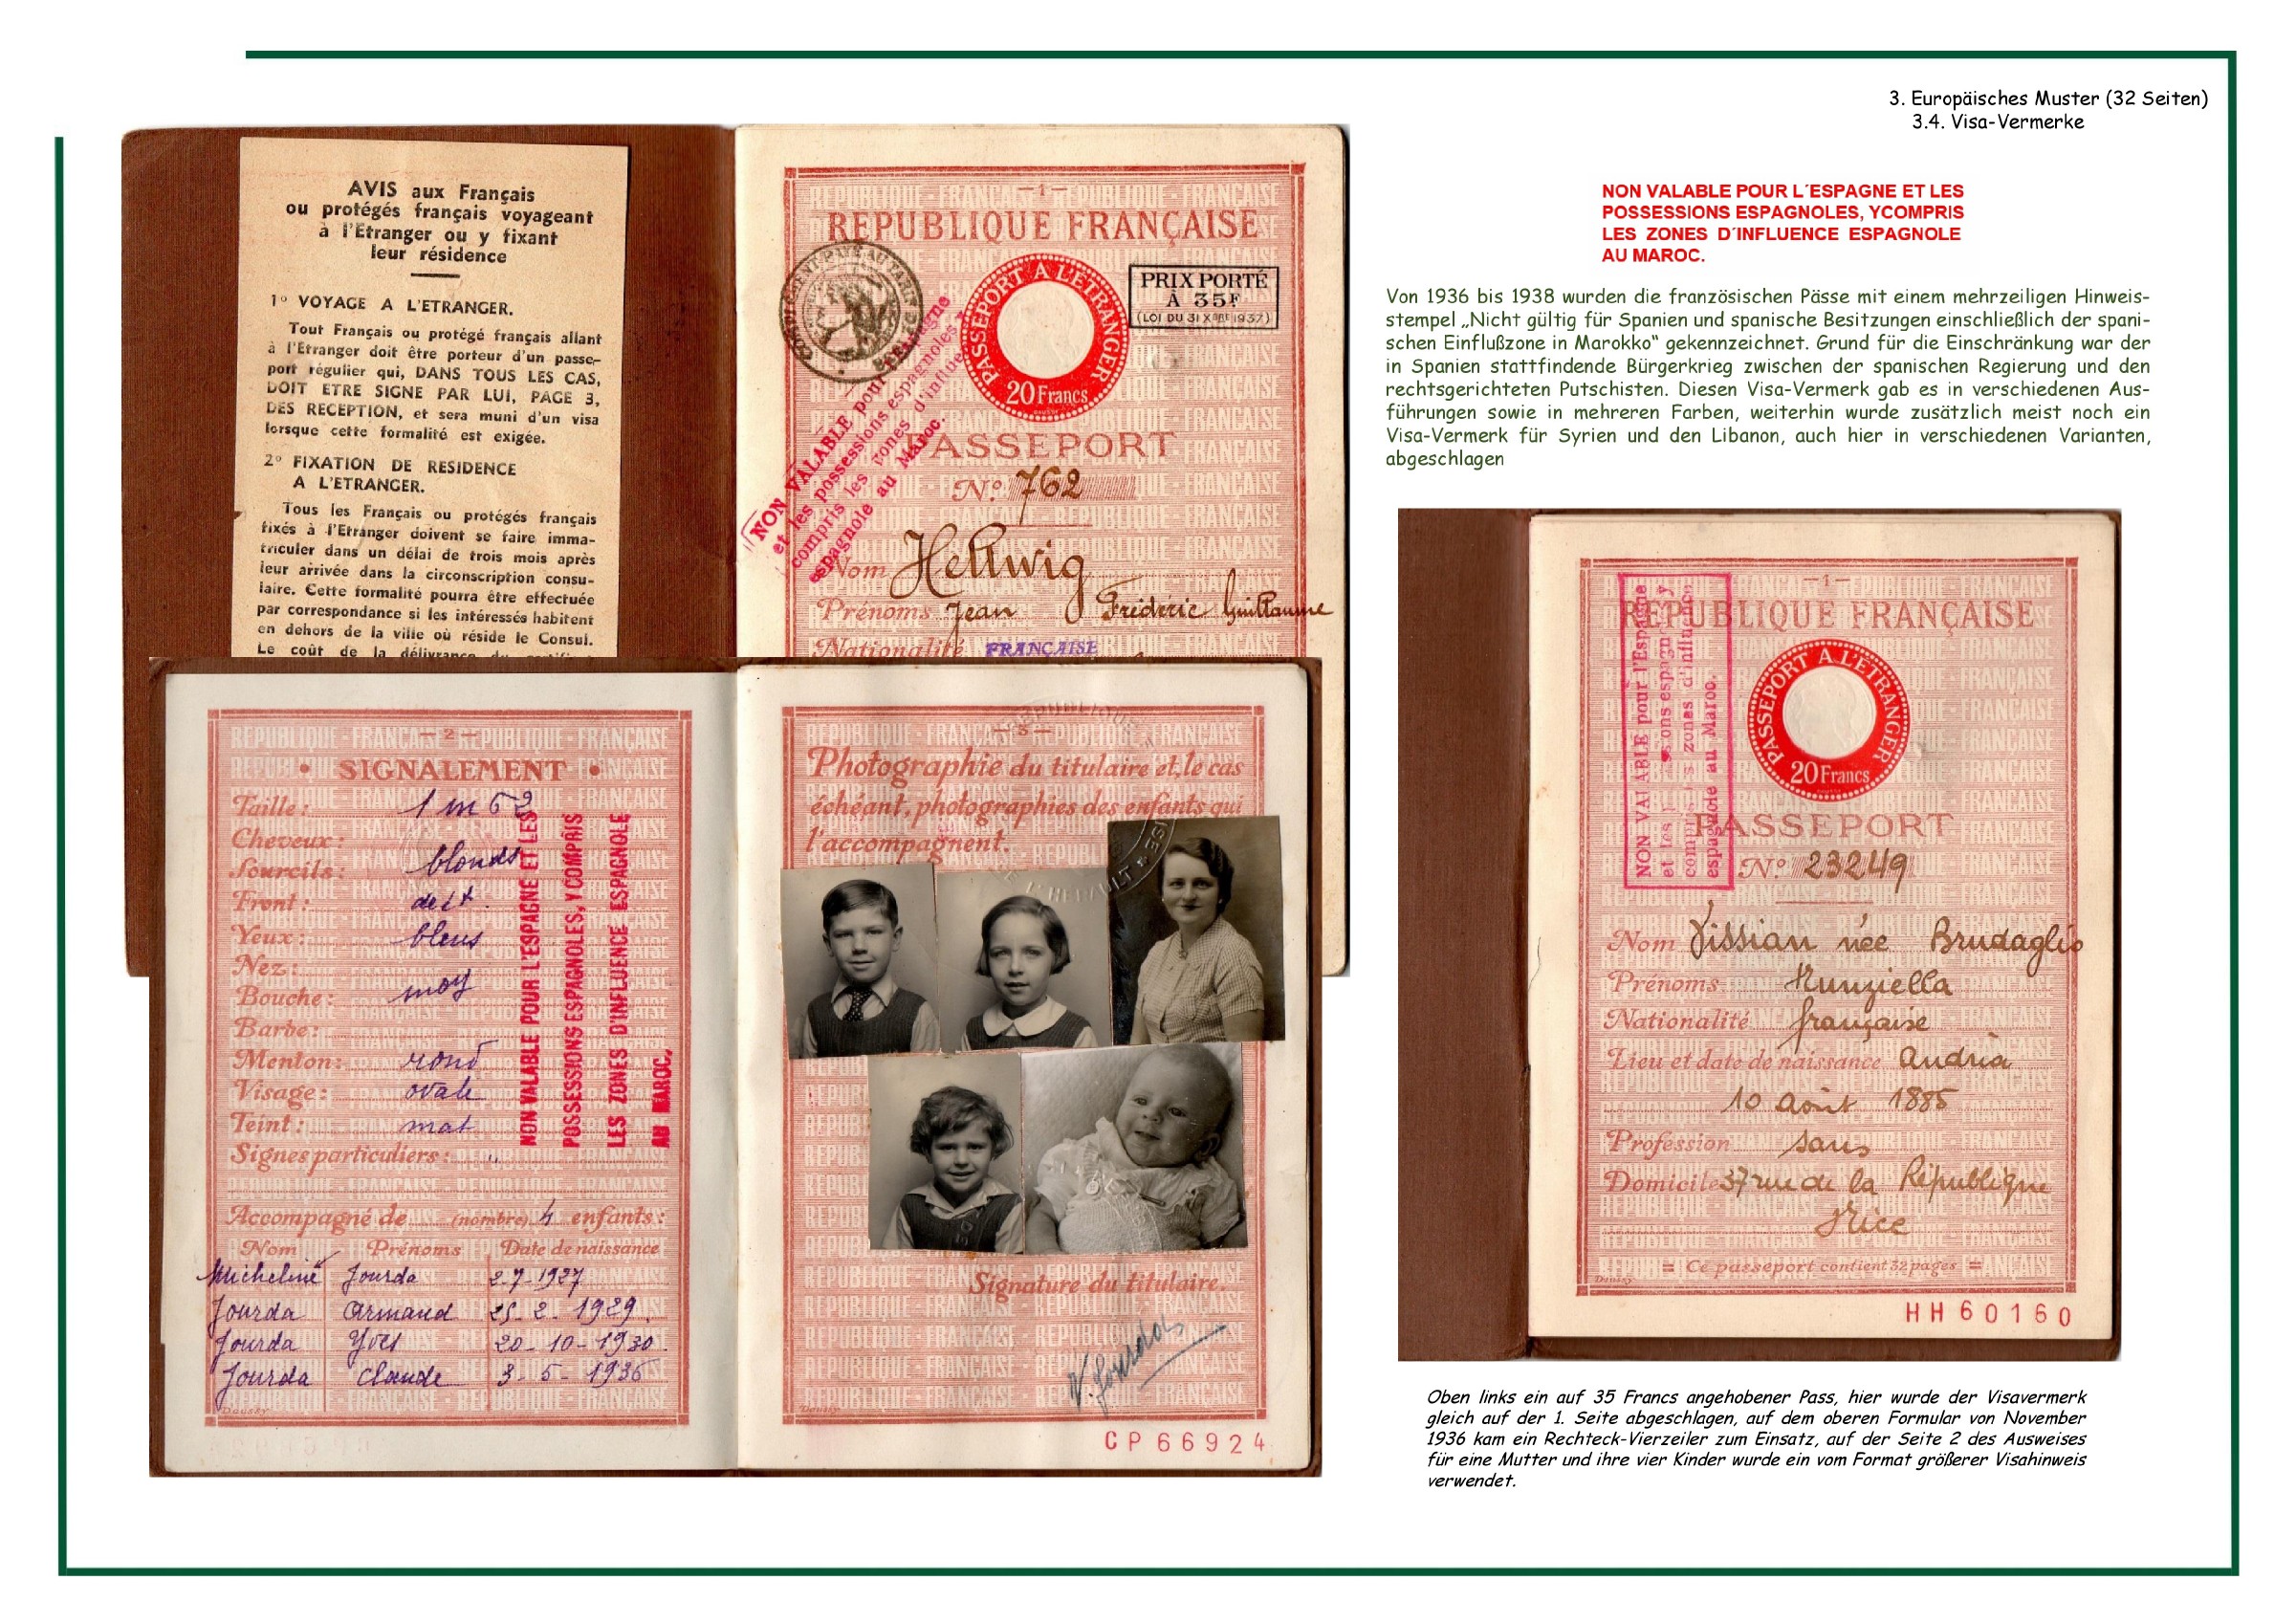 3. Europäisches Muster (32 Seiten)
3.4. Visa-Vermerke
NON VALABLE POUR L´ESPAGNE ET LES
POSSESSIONS ESPAGNOLES, YCOMPRIS
LES ZONES D´INFLUENCE ESPAGNOLE
AU MAROC.
Von 1936 bis 1938 wurden die französischen Pässe mit einem mehrzeiligen Hinweis-
stempel „Nicht gültig für Spanien und spanische Besitzungen einschließlich der spani-
schen Einflußzone in Marokko“ gekennzeichnet. Grund für die Einschränkung war der
in Spanien stattfindende Bürgerkrieg zwischen der spanischen Regierung und den
rechtsgerichteten Putschisten. Diesen Visa-Vermerk gab es in verschiedenen Aus-
führungen sowie in mehreren Farben, weiterhin wurde zusätzlich meist noch ein
Visa-Vermerk für Syrien und den Libanon, auch hier in verschiedenen Varianten,
abgeschlagen
AVIS aux Français
ou protégés français voyageant
à l'Etranger ou y fixant
leur résidence
1° VOYAGE A L'ETRANGER.
Tout Français ou protégé français allant
à l'Etranger doit être porteur d'un passe-
port régulier qui, DANS TOUS LES CAS,
DOIT ETRE SIGNE PAR LUI, PAGE 3,
DES RECEPTION, et sera muni d'un visa
lorsque cette formalité est exigée.
2° FIXATION DE RESIDENCE
A L'ETRANGER.
Tous les Français ou protégés français
fixés à l'Etranger doivent se faire imma-
triculer dans un délai de trois mois après
leur arrivée dans la circonscription consu-
laire. Cette formalité pourra être effectuée
par correspondance si les intéressés habitent
en dehors de la ville où réside le Consul.
Le coût de la délivrance du
- 1 -
REPUBLIQUE FRANÇAISE
PASSEPORT A L'ÉTRANGER
20 Francs
PRIX PORTÉ
À 35F
(LOI DU 31 XBRE 1937)
NON VALABLE pour l'Espagne
et les possessions espagnoles y
compris les zones d'influence
espagnole au Maroc.
PASSEPORT
N° 762
Nom Hellwig
Prénoms Jean Fréderic Guillaume
Nationalité FRANÇAISE
- 2 -
• SIGNALEMENT •
Taille: 1 m 62
Cheveux:
Sourcils: blonds
Front: dét.
Yeux: bleus
Nez:
Bouche: moy
Barbe:
Menton: rond
Visage: ovale
Teint: mat
Signes particuliers: "
Accompagné de (nombre) 4 enfants:
Nom Prénoms Date de naissance
Micheline Jourda 2-7-1927
Jourda Armand 25-2-1929
Jourda Yves 20-10-1930
Jourda Claude 3-5-1936
NON VALABLE POUR L'ESPAGNE ET LES
POSSESSIONS ESPAGNOLES, Y COMPRIS
LES ZONES D'INFLUENCE ESPAGNOLE
AU MAROC.
- 3 -
Photographie du titulaire et, le cas
échéant, photographies des enfants qui
l'accompagnent.
Signature du titulaire.
V. Jourda
CP 66924
- 1 -
REPUBLIQUE FRANÇAISE
PASSEPORT A L'ÉTRANGER
20 Francs
NON VALABLE pour l'Espagne
et les
zones d'influence
espagnole au Maroc.
PASSEPORT
N° 23249
Nom Vissian née Brudaglio
Prénoms Nunziella
Nationalité française
Lieu et date de naissance Andria
10 août 1885
Profession sans
Domicile 37 rue de la République
Nice
= Ce passeport contient 32 pages =
HH 60160
Oben links ein auf 35 Francs angehobener Pass, hier wurde der Visavermerk
gleich auf der 1. Seite abgeschlagen, auf dem oberen Formular von November
1936 kam ein Rechteck-Vierzeiler zum Einsatz, auf der Seite 2 des Ausweises
für eine Mutter und ihre vier Kinder wurde ein vom Format größerer Visahinweis
verwendet.